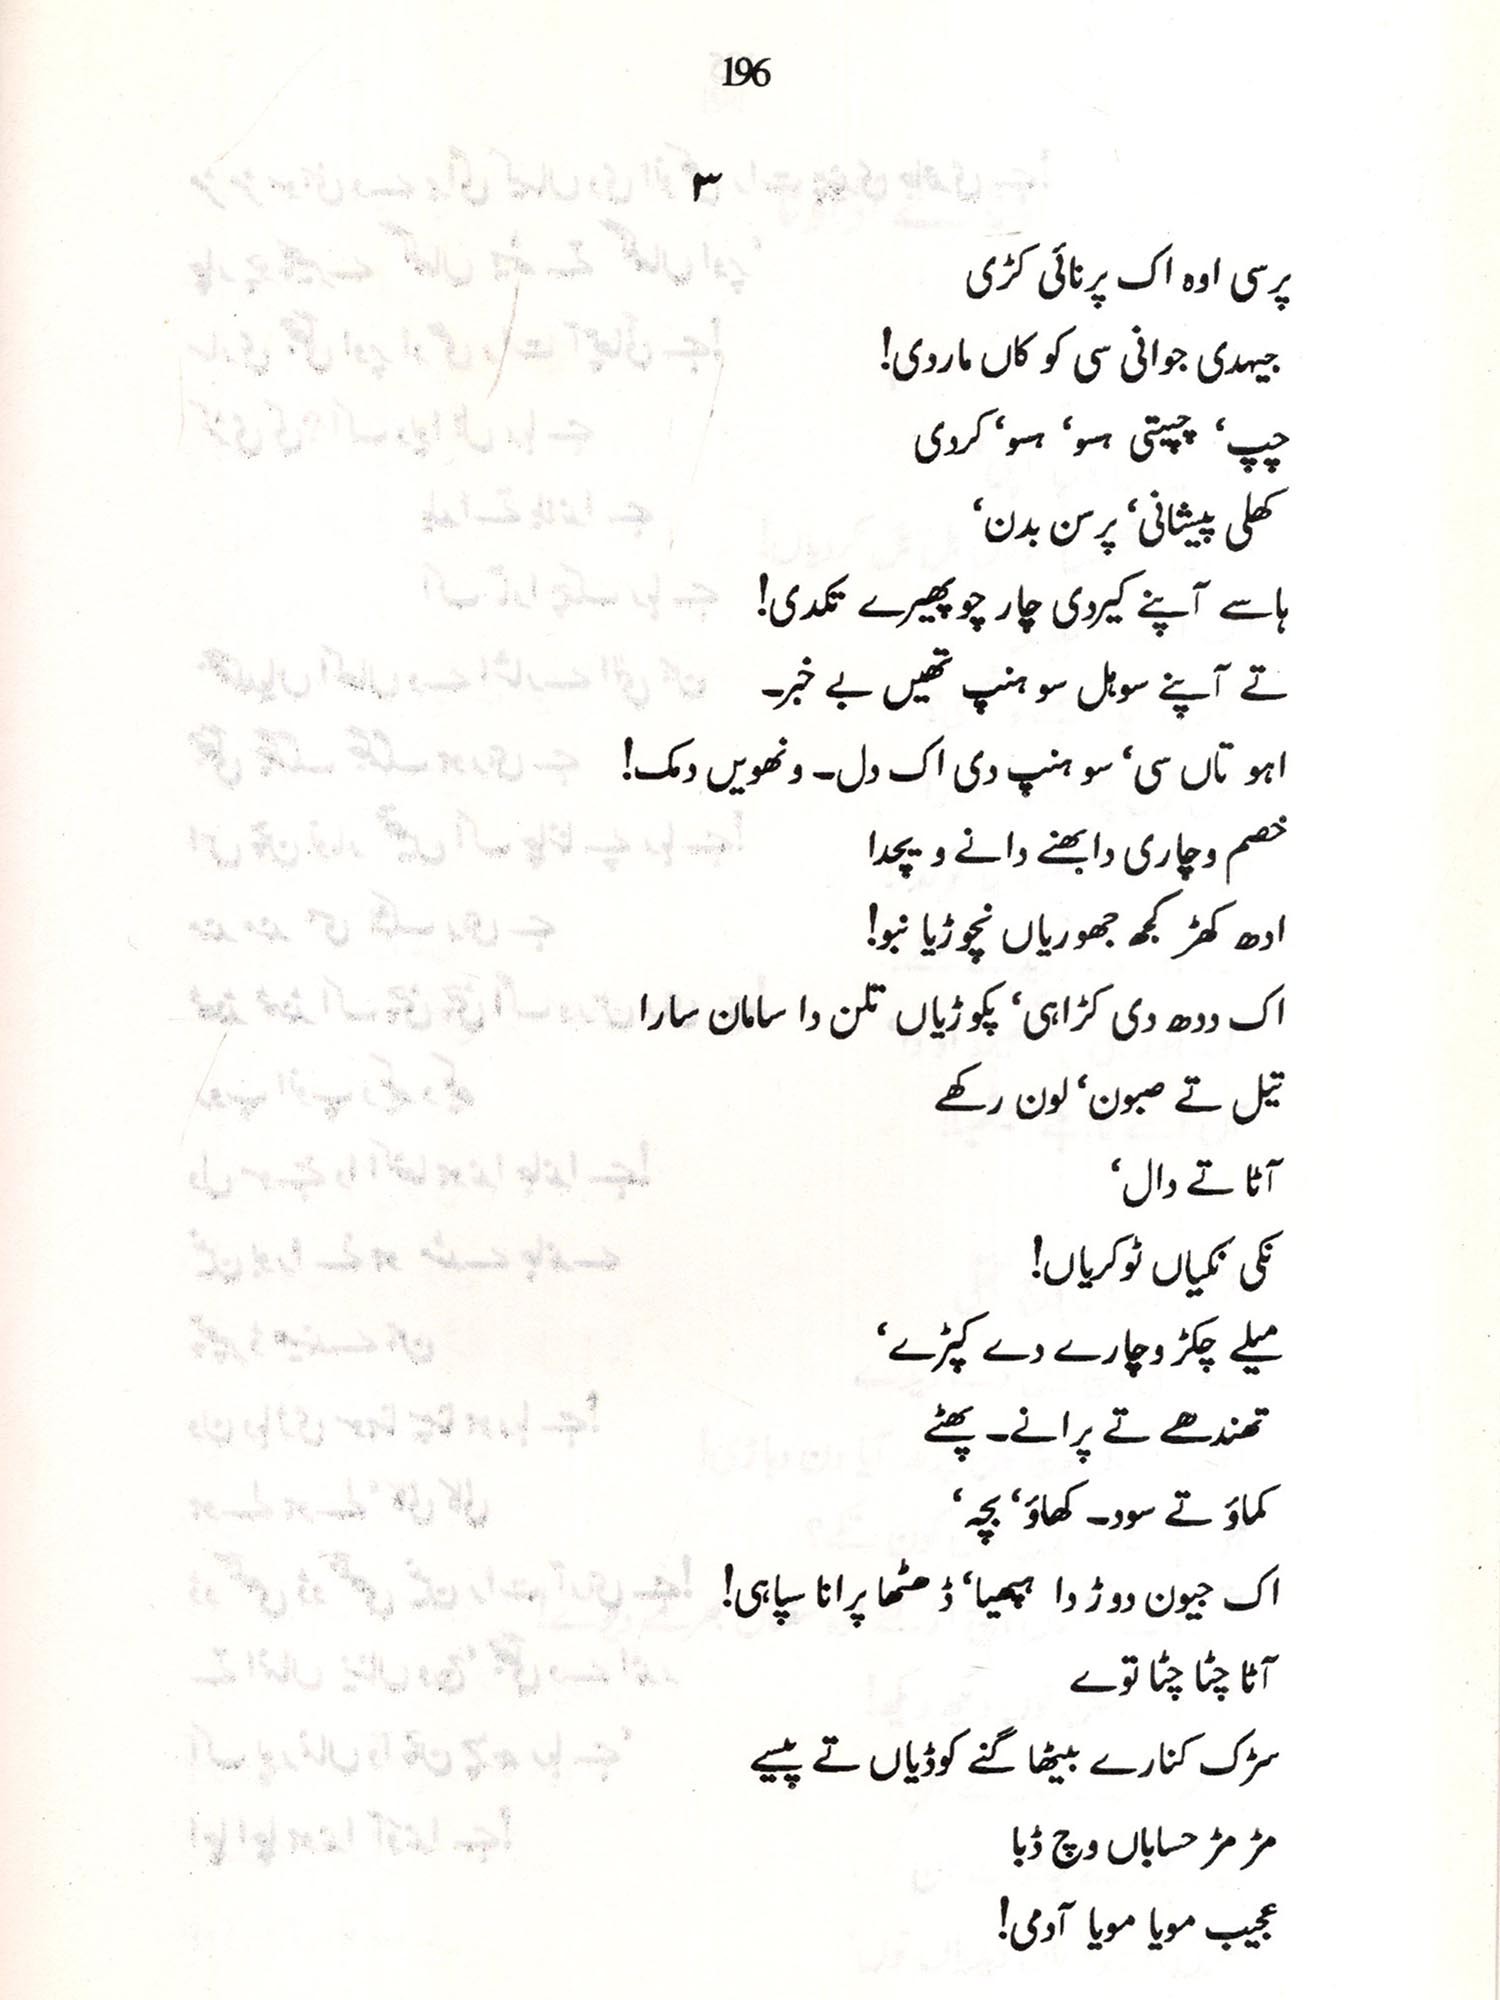 196
۳
پر سی اوہ اک پرنائی کڑی
جیہدی جوانی سی کو کاں ماردی!
چپ‘ چپیتی ہسو‘ ہسو‘ کردی
کھلی پیشانی‘ پرسن بدن‘
ہاسے آپنے کیردی چار چوپھیرے تکدی!
تے آپنے سوہل سوہنپ تھیں بے خبر۔
اہو تاں سی‘ سوہنپ دی اک دل۔ ونھویں دمک!
خصم وچاری دا بھنے دانے ویچدا
ادھ کھڑ کجھ جھوریاں نچوڑیا نبو!
اک ددھ دی کڑاہی‘ پکوڑیاں تلن دا سامان سارا
تیل تے صبون‘ لون رکھے
آٹا تے دال‘
نکی نکیاں ٹوکریاں!
میلے چکڑ وچارے دے کپڑے‘
تھندھے تے پرانے۔ پھٹے
کماؤ تے سود۔ کھاؤ‘ بچہ‘
اک جیون دوڑ دا ہپھیا‘ ڈھٹھا پرانا سپاہی!
آٹا چٹا چٹا توے
سڑک کنارے بیٹھا گنے کوڈیاں تے پیسے
مڑ مڑ حساباں وچ ڈبا
عجیب مویا مویا آدمی!